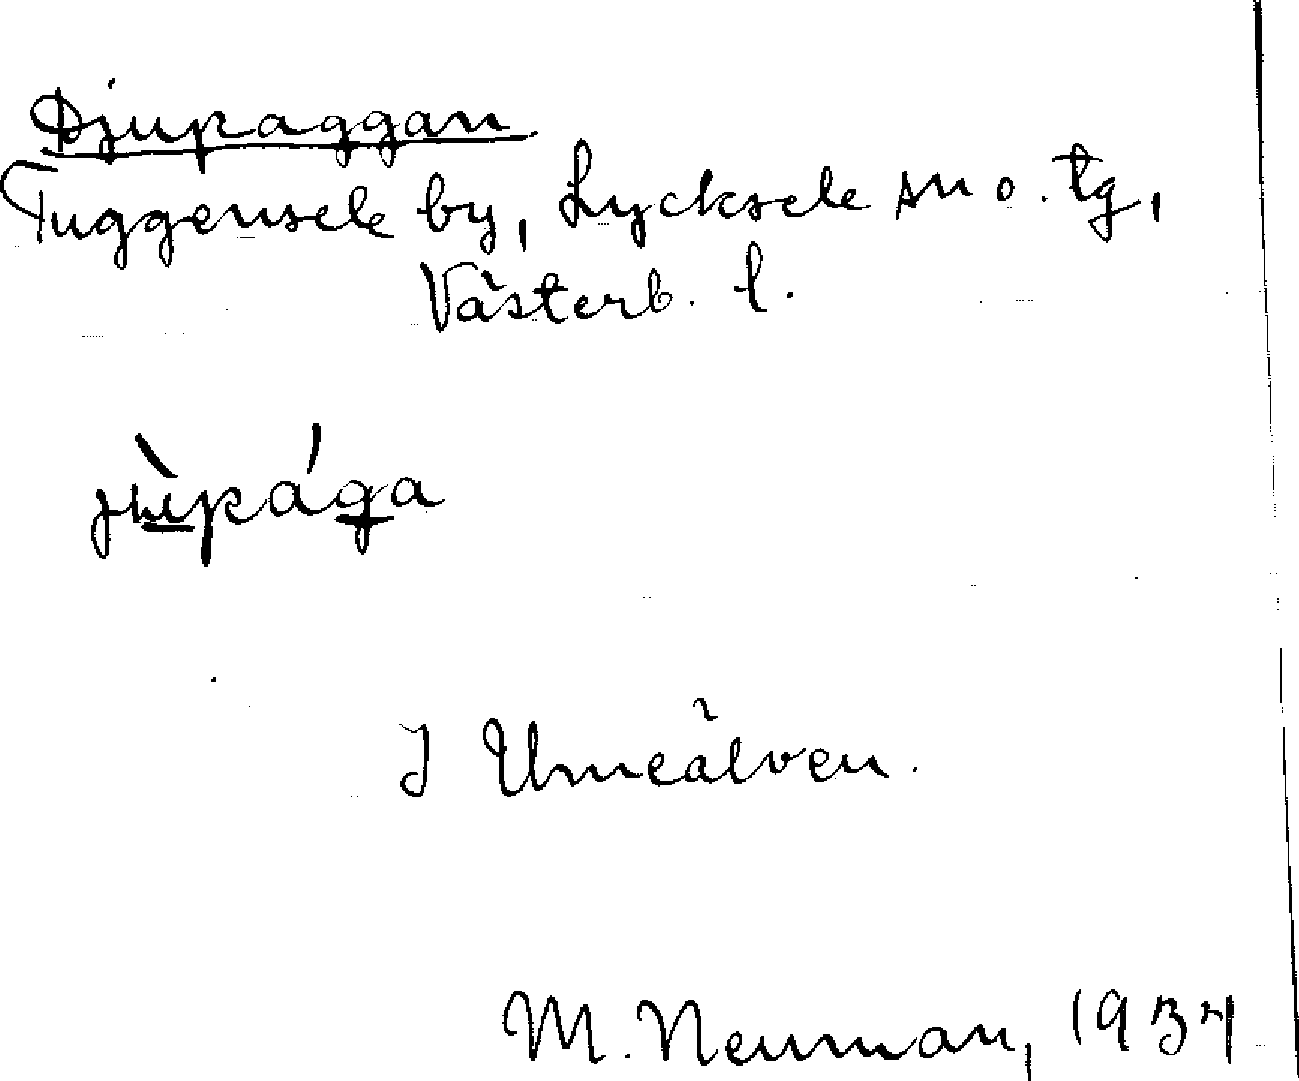 Djupaggan
Tuggensele by, Lycksele sn o. tg,
Västerb. l.
jùpága
I Umeälven.
M. Neuman, 1934